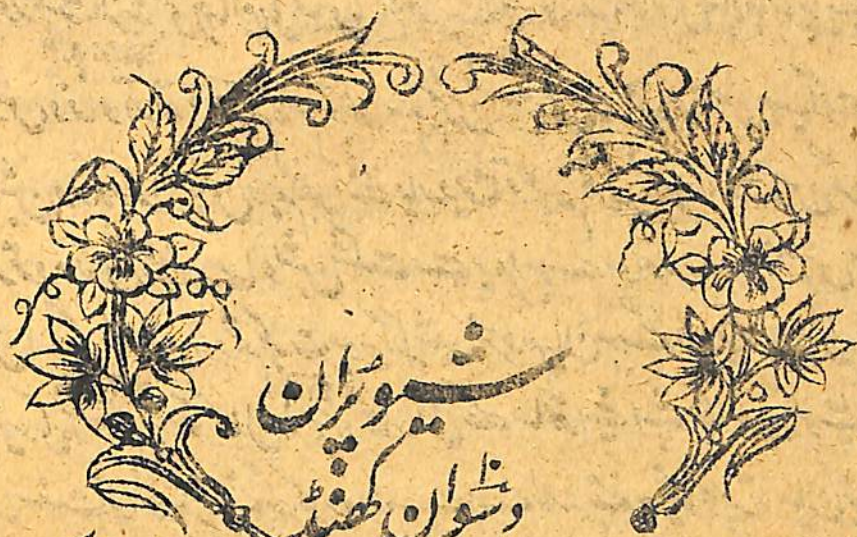 شیو پُران
دسواں کھنڈ